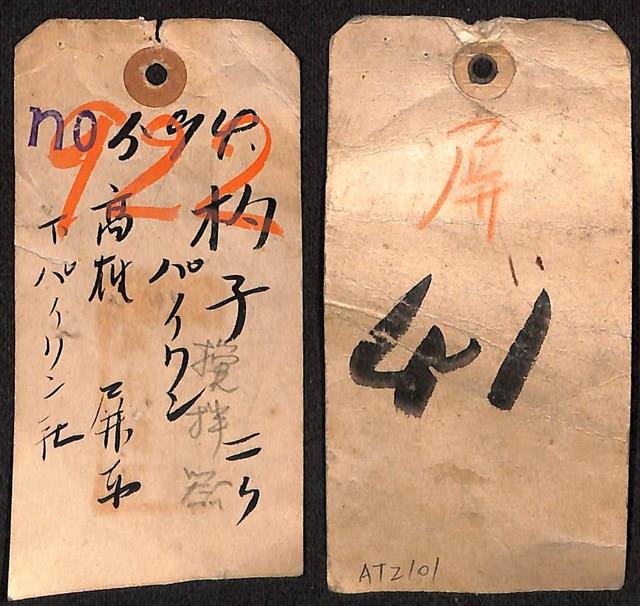 no 922
杓子 二ケ
パイワン
攪拌器
高雄 屏东
下パイリン社
屏
41
AT2101